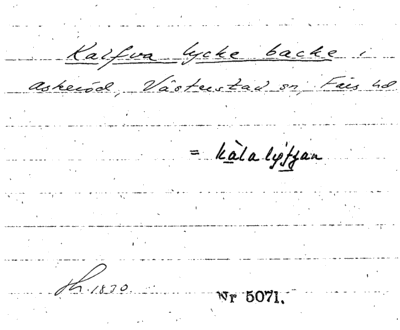 Kalfva lycke backe i
Askeröd, Västerstad sn, Färs hd
= kålalyfjan
1830
Nr 5071.